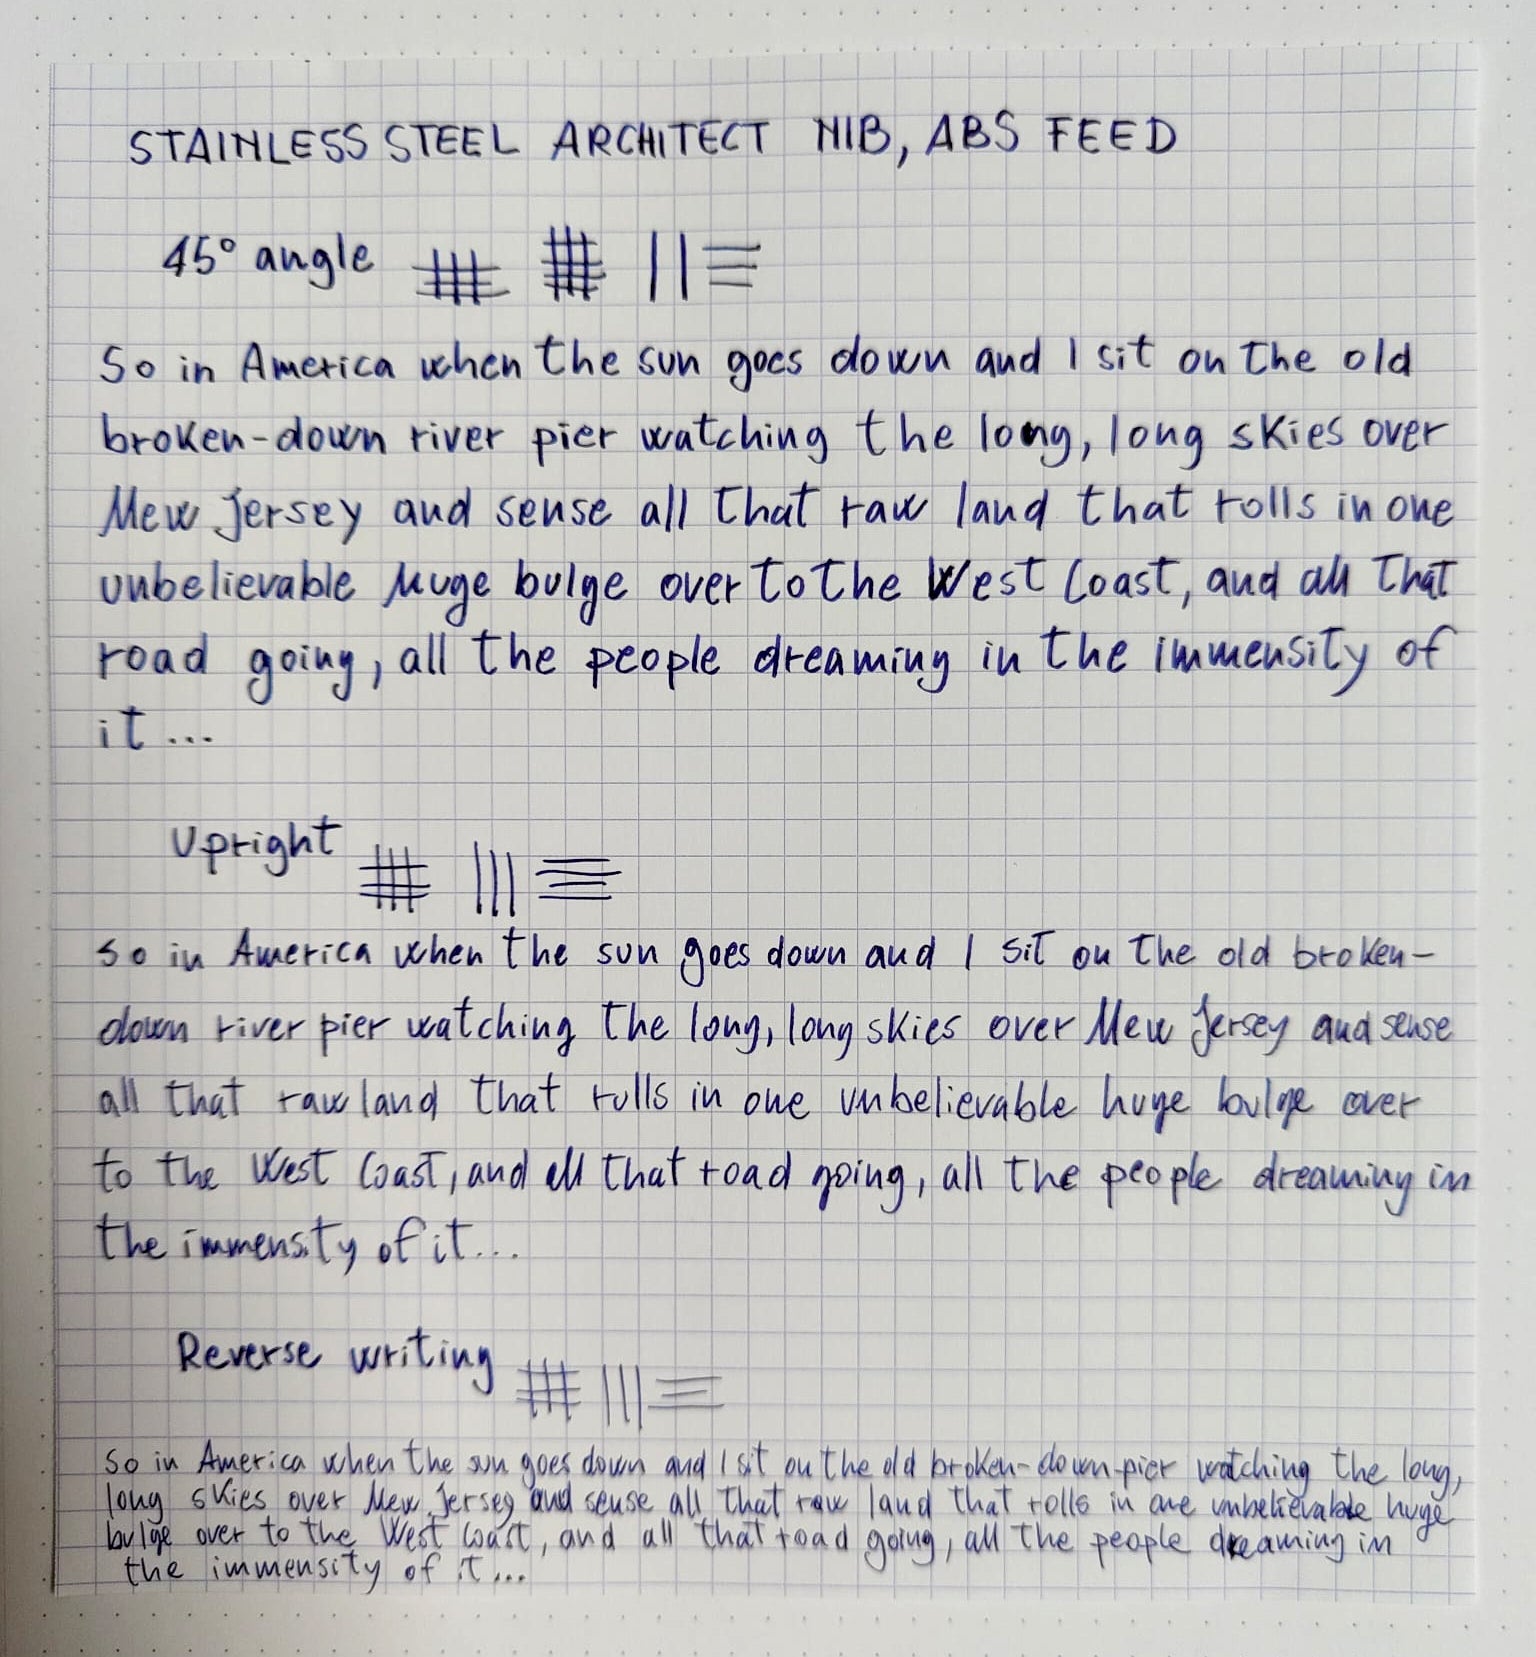 STAINLESS STEEL ARCHITECT NIB, ABS FEED
45° angle
So in America when the sun goes down and I sit on the old
broken-down river pier watching the long, long skies over
New Jersey and sense all that raw land that rolls in one
unbelievable huge bulge over to the West Coast, and all that
road going, all the people dreaming in the immensity of
it...
Upright
So in America when the sun goes down and I sit on the old broken-
down river pier watching the long, long skies over New Jersey and sense
all that raw land that rolls in one unbelievable huge bulge over
to the West Coast, and all that road going, all the people dreaming in
the immensity of it...
Reverse writing
So in America when the sun goes down and I sit on the old broken-down pier watching the long,
long skies over New Jersey and sense all that raw land that rolls in one unbelievable huge
bulge over to the West Coast, and all that road going, all the people dreaming in
the immensity of it...